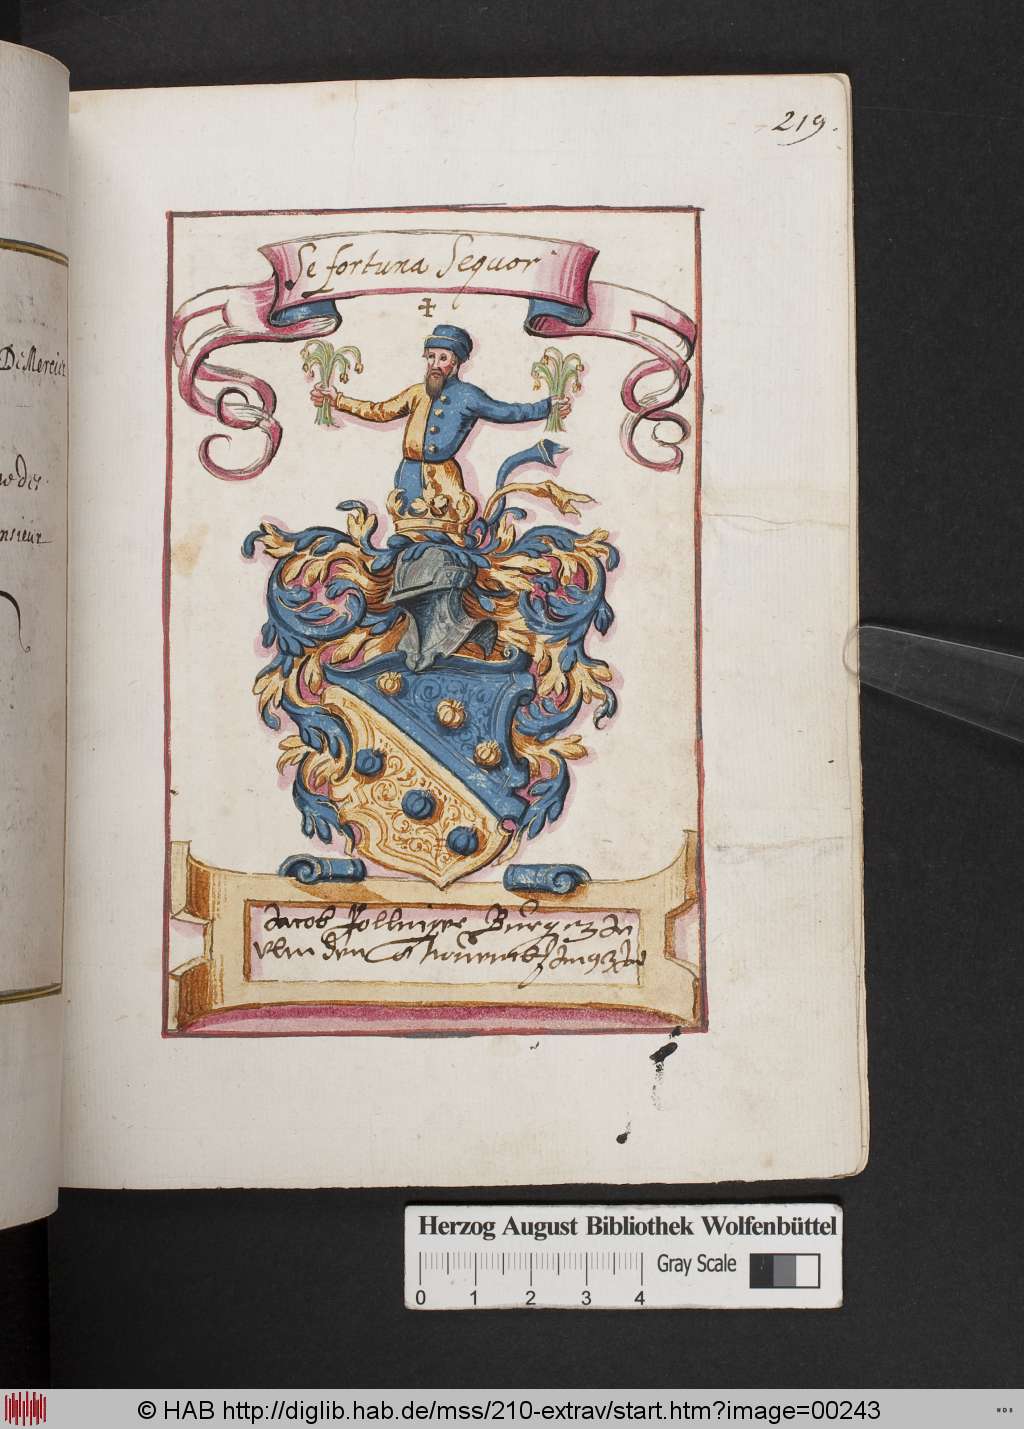 219.
De Mercier
Se fortuna Sequor
Jacob
Burger zu
Ulm den
Herzog August Bibliothek Wolfenbüttel
Gray Scale
0 1 2 3 4
© HAB http://diglib.hab.de/mss/210-extrav/start.htm?image=00243